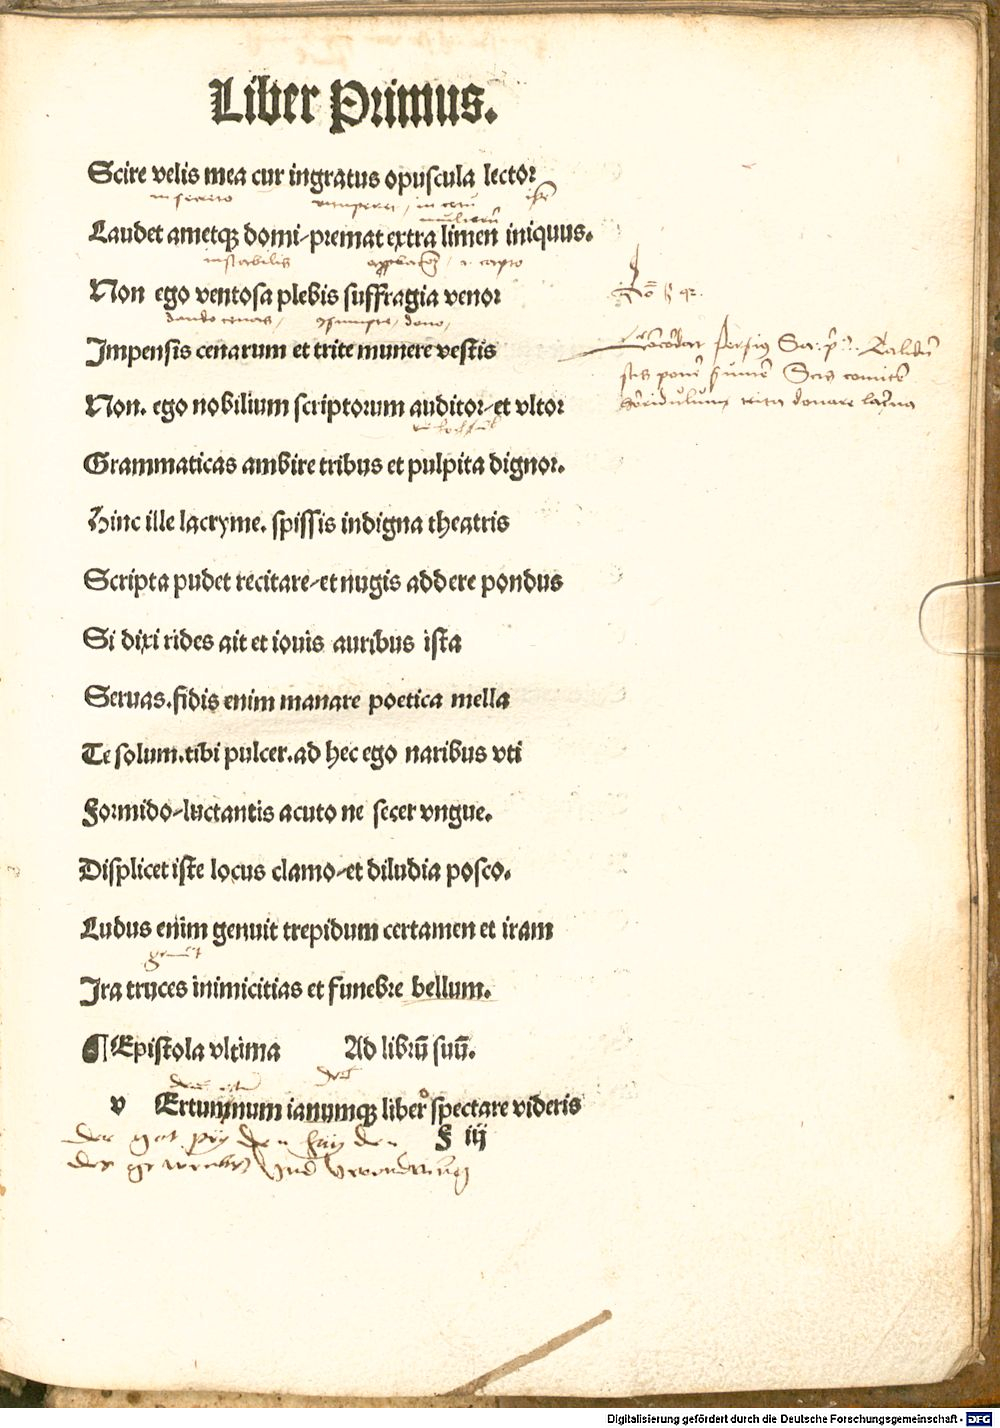 Liber Primus.
Scire velis mea cur ingratus opuscula lector
in secreto vituperet / in cetu iste
mulierū
Laudet ametqꝫ domi-premat extra limen iniquus.
instabilis
Non ego ventosa plebis suffragia venor
dando cenas /
Impensis cenarum et trite munere vestis
Non. ego nobilium scriptorum auditor-et vltor
Grammaticas ambire tribus et pulpita dignor.
Hinc ille lacryme. spissis indigna theatris
Scripta pudet recitare-et nugis addere pondus
Si dixi rides ait et iouis auribus ista
Seruas. fidis enim manare poetica mella
Te solum. tibi pulcer. ad hec ego naribus vti
Formido-luctantis acuto ne secer vngue.
Displicet iste locus clamo-et diludia posco.
Ludus enim genuit trepidum certamen et iram
genuit
Ira truces inimicitias et funebre bellum.
¶ Epistola vltima Ad librū suū.
v Ertumnum ianumqꝫ liber spectare videris
F iij
der got
Persius
ponere sumen Scis comitem
horridulum trita donare lacerna
Digitalisierung gefördert durch die Deutsche Forschungsgemeinschaft - DFG